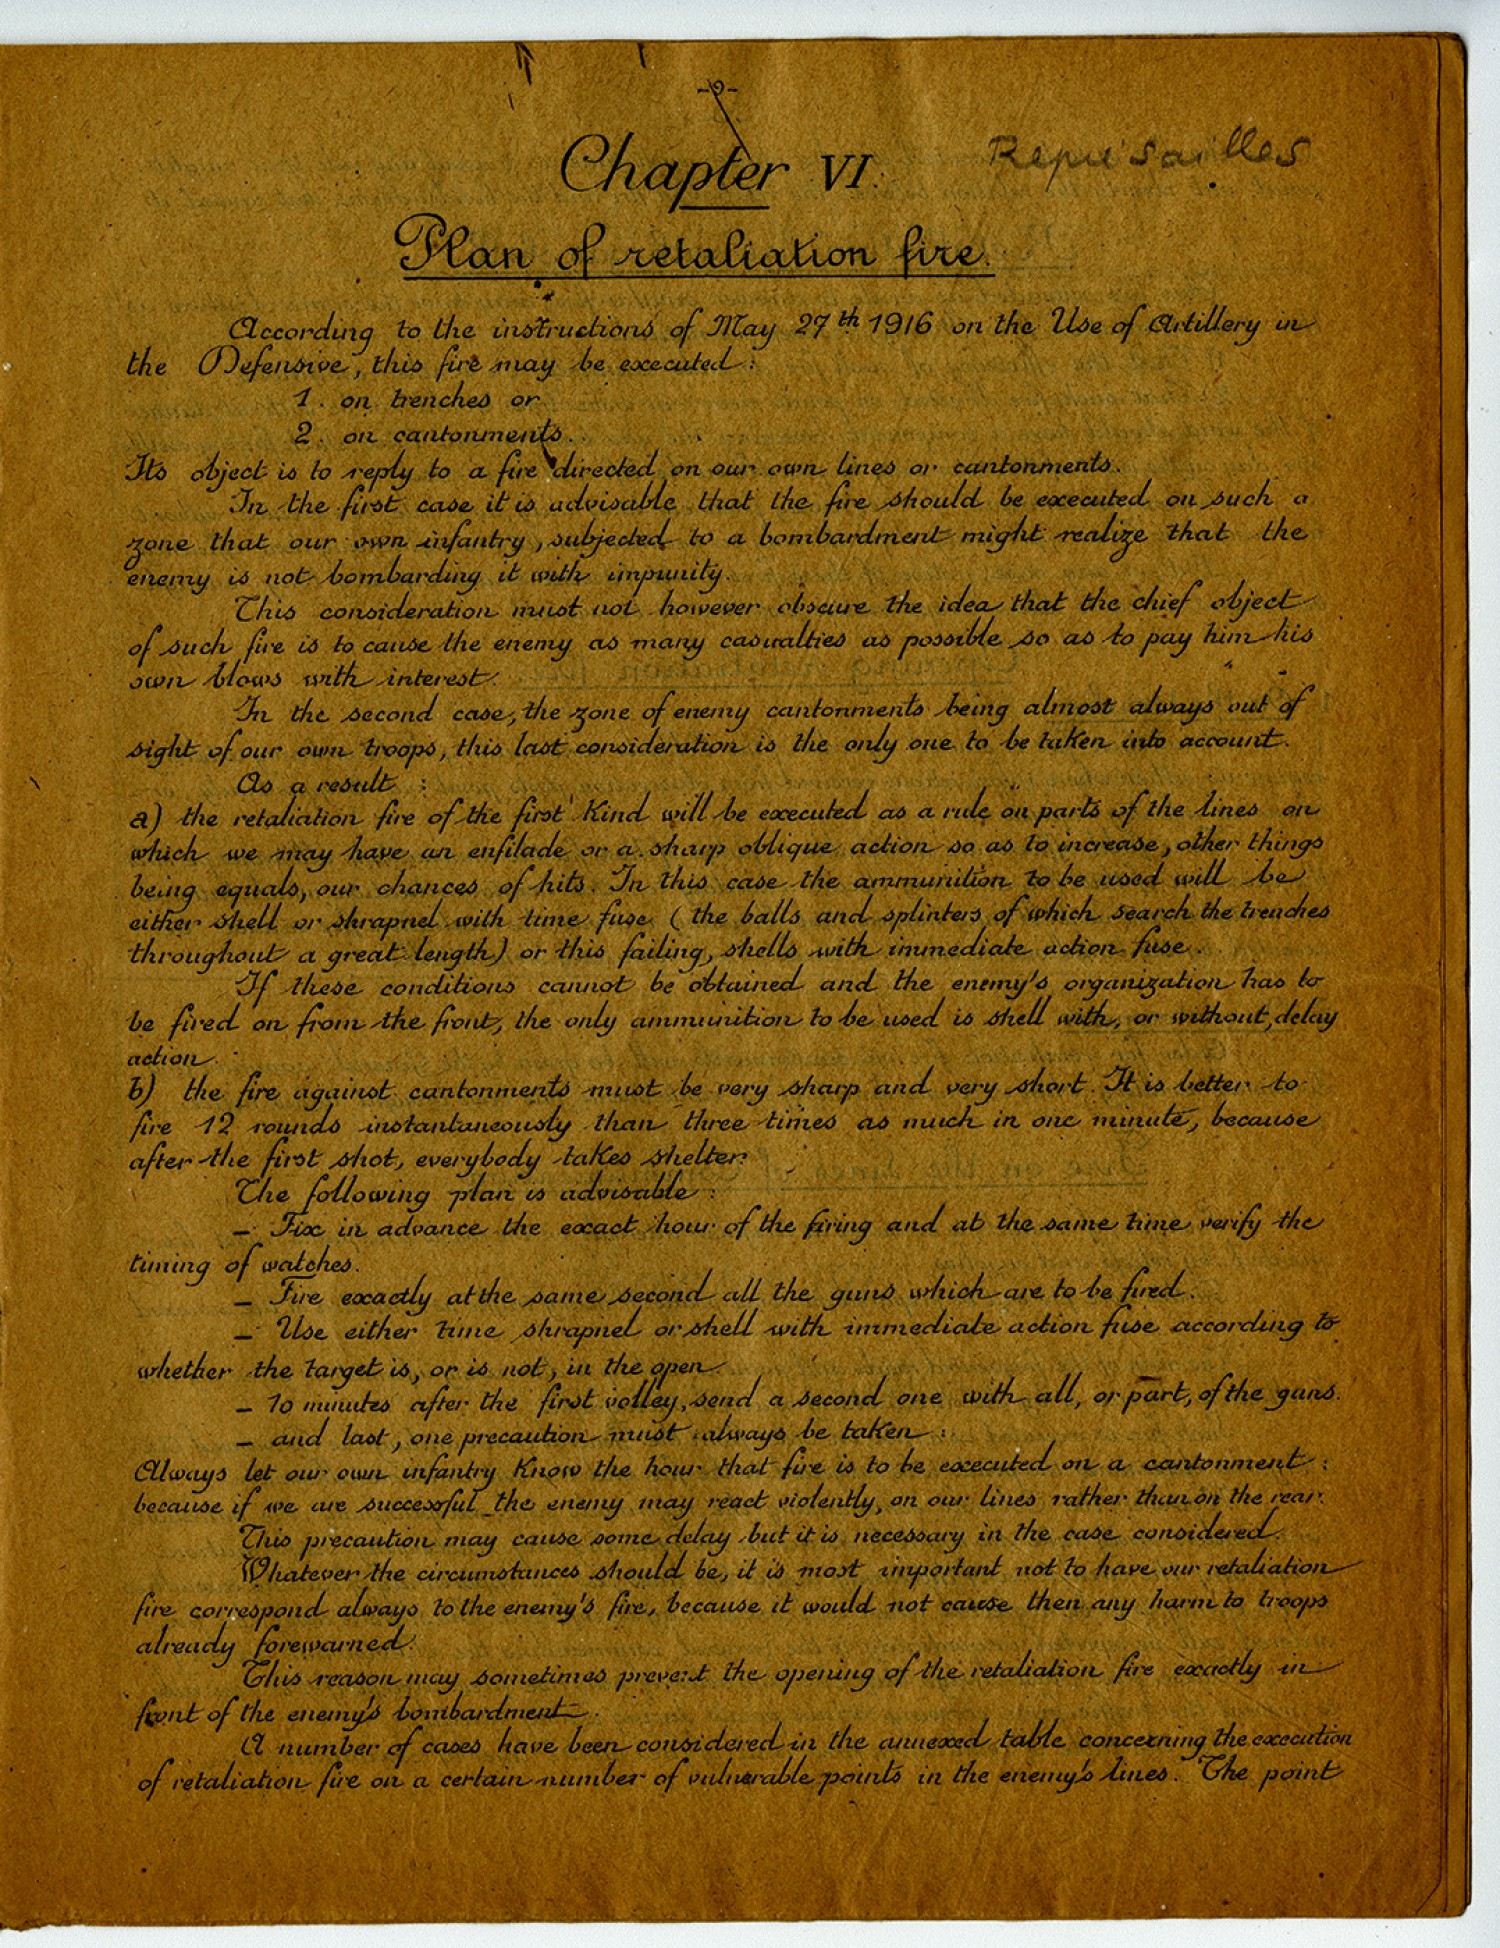 -9-
Chapter VI.
Represailles
Plan of retaliation fire.
According to the instructions of May 27th 1916 on the Use of Artillery in
the Defensive, this fire may be executed :
1. on trenches or
2. on cantonments.
Its object is to reply to a fire directed on our own lines or cantonments.
In the first case it is advisable that the fire should be executed on such a
zone that our own infantry, subjected to a bombardment might realize that the
enemy is not bombarding it with impunity.
This consideration must not however obscure the idea that the chief object
of such fire is to cause the enemy as many casualties as possible so as to pay him his
own blows with interest.
In the second case, the zone of enemy cantonments being almost always out of
sight of our own troops, this last consideration is the only one to be taken into account.
As a result :
a) the retaliation fire of the first Kind will be executed as a rule on parts of the lines on
which we may have an enfilade or a sharp oblique action so as to increase, other things
being equals, our chances of hits. In this case the ammunition to be used will be
either shell or shrapnel with time fuse (the balls and splinters of which search the trenches
throughout a great length) or this failing, shells with immediate action fuse.
If these conditions cannot be obtained and the enemy's organization has to
be fired on from the front, the only ammunition to be used is shell with, or without, delay
action.
b) the fire against cantonments must be very sharp and very short. It is better to
fire 12 rounds instantaneously than three times as much in one minute, because
after the first shot, everybody takes shelter.
The following plan is advisable :
- Fix in advance the exact hour of the firing and at the same time verify the
timing of watches.
- Fire exactly at the same second all the guns which are to be fired.
- Use either time shrapnel or shell with immediate action fuse according to
whether the target is, or is not, in the open.
- 10 minutes after the first volley, send a second one with all, or part, of the guns.
- and last, one precaution must always be taken :
Always let our own infantry Know the hour that fire is to be executed on a cantonment :
because if we are successful the enemy may react violently, on our lines rather than on the rear.
This precaution may cause some delay but it is necessary in the case considered.
Whatever the circumstances should be, it is most important not to have our retaliation
fire correspond always to the enemy's fire, because it would not cause then any harm to troops
already forewarned.
This reason may sometimes prevent the opening of the retaliation fire exactly in
front of the enemy's bombardment.
A number of cases have been considered in the annexed table concerning the execution
of retaliation fire on a certain number of vulnerable points in the enemy's lines. The point